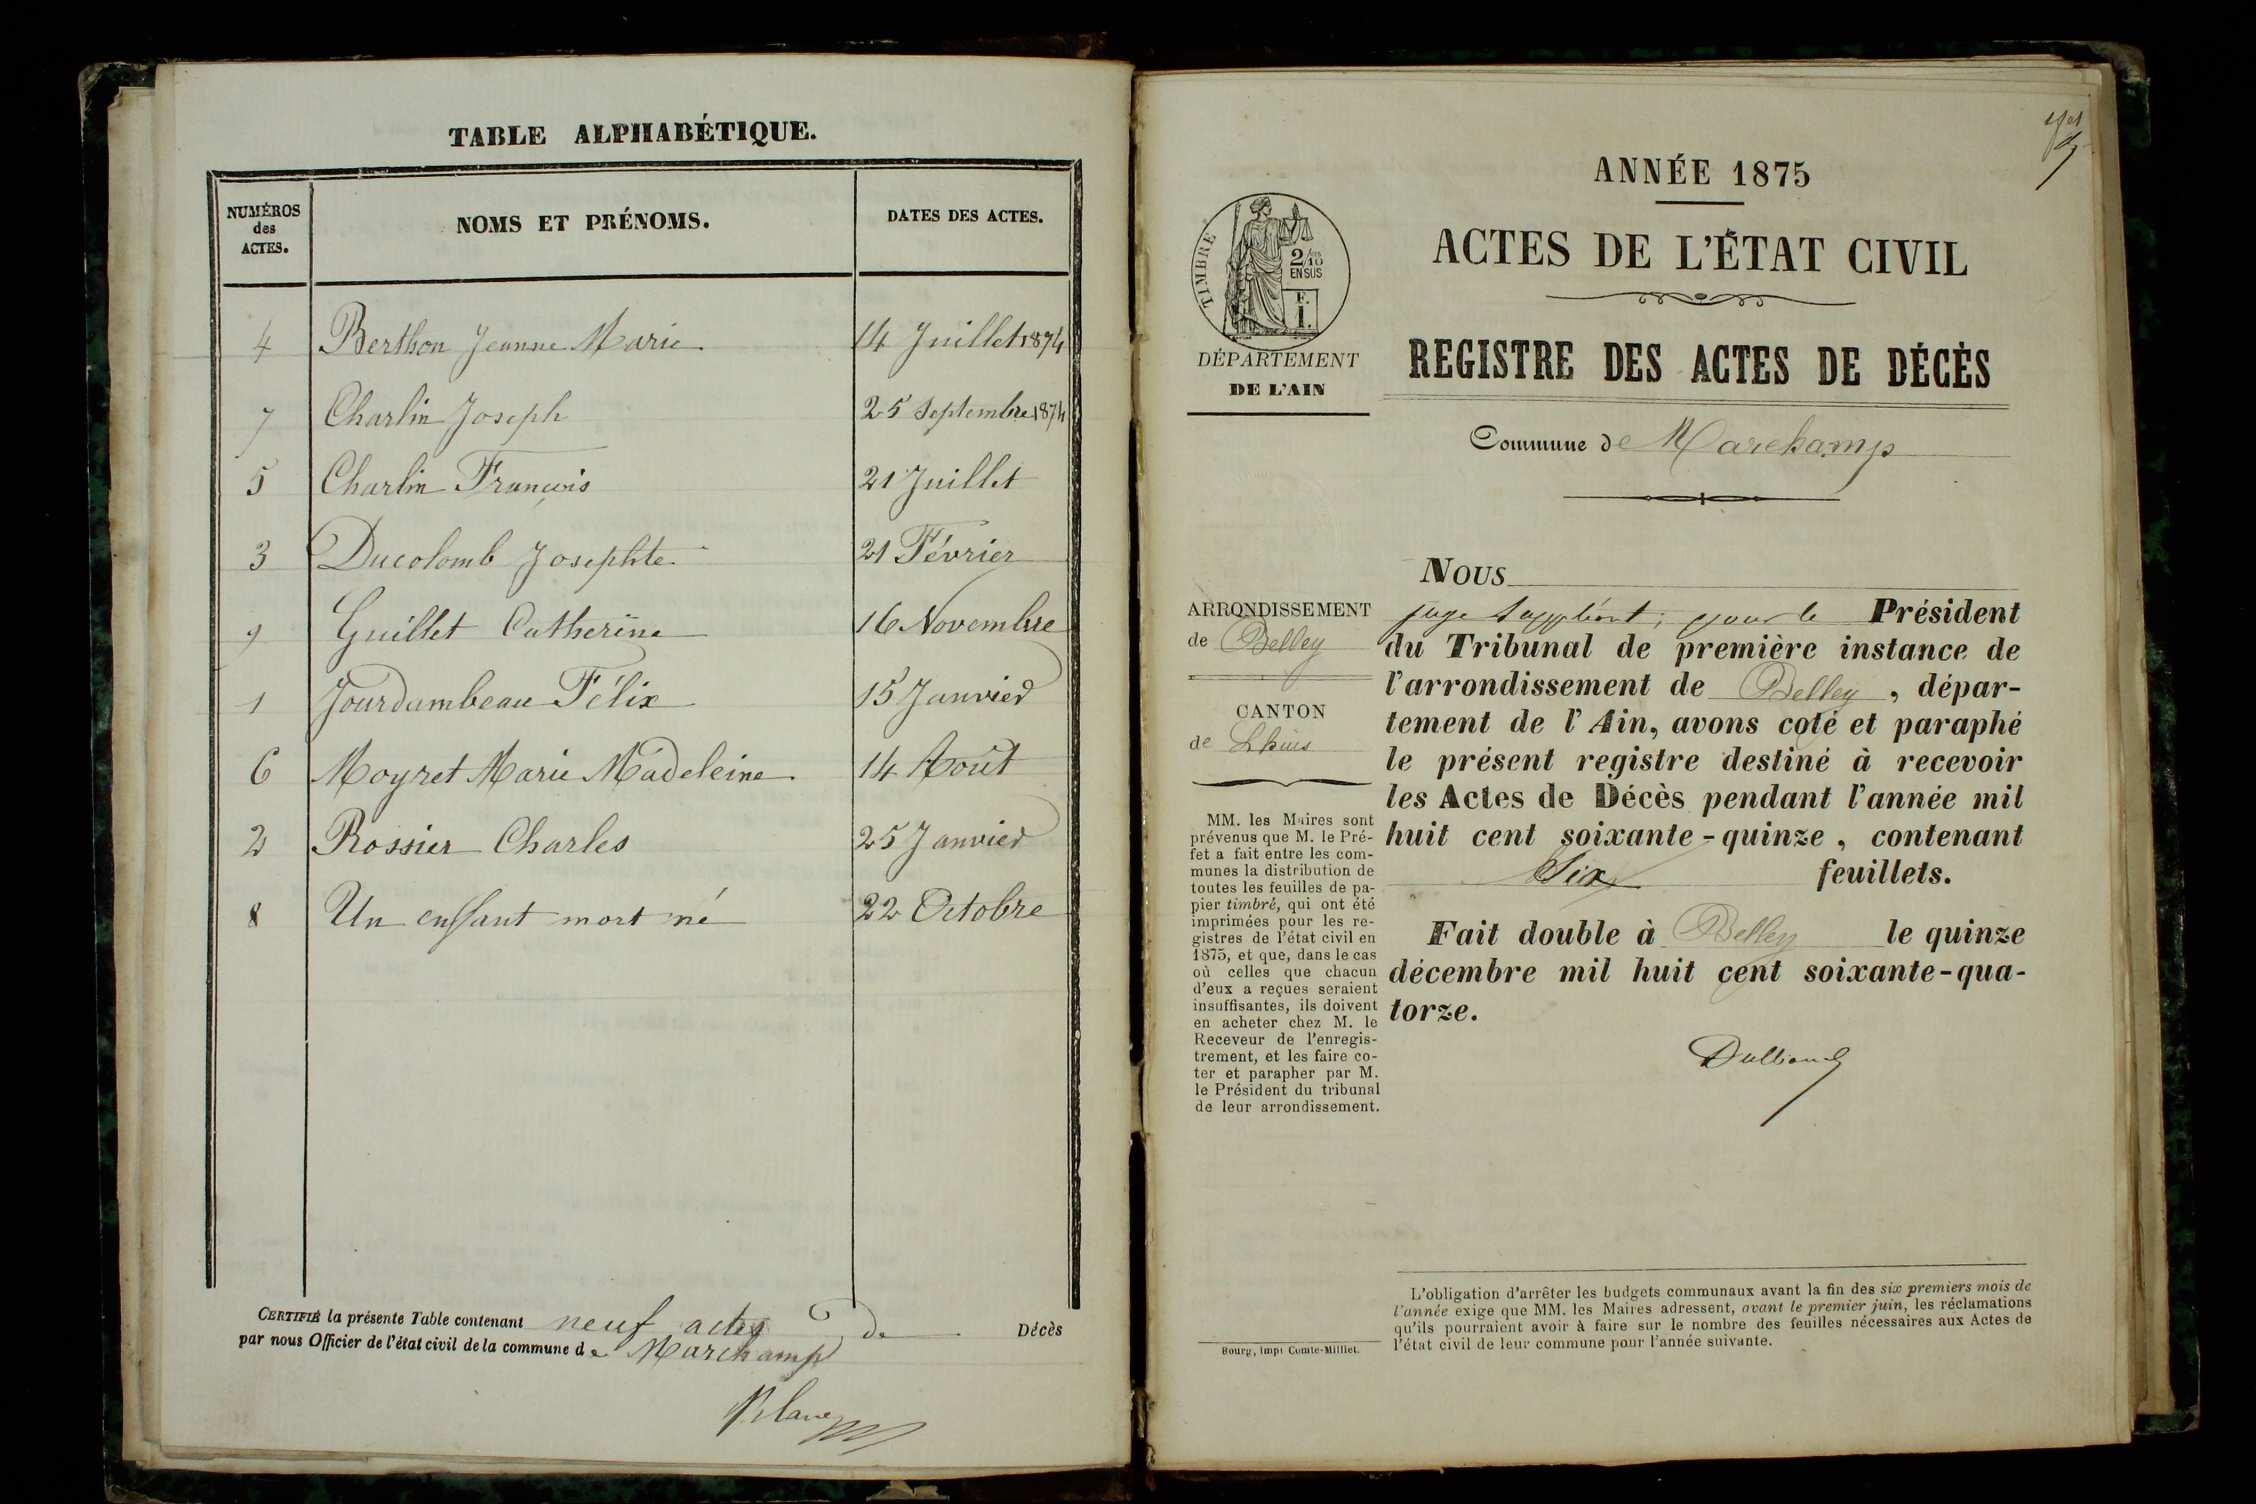 TABLE ALPHABÉTIQUE.
NUMÉROS des ACTES. NOMS ET PRÉNOMS. DATES DES ACTES.
4 Berthon Jeanne Marie 14 Juillet 1874
7 Charlin Joseph 25 Septembre 1874
5 Charlin François 21 Juillet
3 Ducolomb Josephte 21 Février
9 Guillet Catherine 16 Novembre
1 Jourdambeau Félix 15 Janvier
6 Moyret Marie Madeleine 14 Août
2 Rossier Charles 25 Janvier
8 Un enfant mort né 22 Octobre
CERTIFIÉ la présente Table contenant neuf actes de Décès
par nous Officier de l'état civil de la commune de Marchamp
ANNÉE 1875
ACTES DE L'ÉTAT CIVIL
TIMBRE
2/10
EN SUS
F.
1.
DÉPARTEMENT
DE L'AIN
REGISTRE DES ACTES DE DÉCÈS
Commune de Marchamp
ARRONDISSEMENT
de Belley
CANTON
de Lhuis
MM. les Maires sont
prévenus que M. le Pré-
fet a fait entre les com-
munes la distribution de
toutes les feuilles de pa-
pier timbré, qui ont été
imprimées pour les re-
gistres de l'état civil en
1875, et que, dans le cas
où celles que chacun
d'eux a reçues seraient
insuffisantes, ils doivent
en acheter chez M. le
Receveur de l'enregis-
trement, et les faire co-
ter et parapher par M.
le Président du tribunal
de leur arrondissement.
Nous
juge suppléant, pour le Président
du Tribunal de première instance de
l'arrondissement de Belley, dépar-
tement de l'Ain, avons coté et paraphé
le présent registre destiné à recevoir
les Actes de Décès pendant l'année mil
huit cent soixante-quinze, contenant
Six feuillets.
Fait double à Belley le quinze
décembre mil huit cent soixante-qua-
torze.
L'obligation d'arrêter les budgets communaux avant la fin des six premiers mois de
l'année exige que MM. les Maires adressent, avant le premier juin, les réclamations
qu'ils pourraient avoir à faire sur le nombre des feuilles nécessaires aux Actes de
l'état civil de leur commune pour l'année suivante.
Bourg, impr Comte-Milliet.